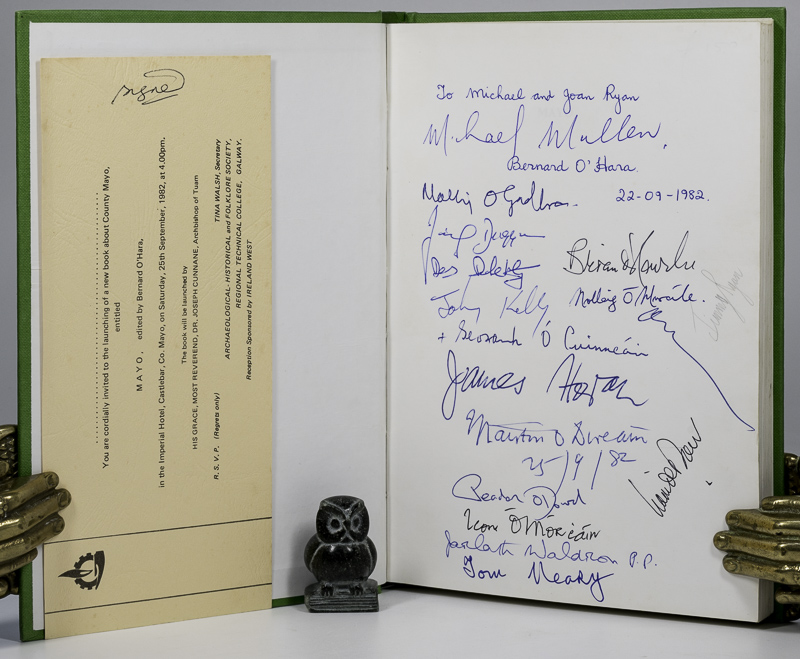 signed
You are cordially invited to the launching of a new book about County Mayo,
entitled
MAYO, edited by Bernard O'Hara,
in the Imperial Hotel, Castlebar, Co. Mayo, on Saturday, 25th September, 1982, at 4.00pm.
The book will be launched by
HIS GRACE, MOST REVEREND, DR. JOSEPH CUNNANE, Archbishop of Tuam
R. S. V. P. (Regrets only)
TINA WALSH, Secretary
ARCHAEOLOGICAL-HISTORICAL and FOLKLORE SOCIETY,
REGIONAL TECHNICAL COLLEGE, GALWAY.
Reception Sponsored by IRELAND WEST
To Michael and Joan Ryan
Michael Mullen.
Bernard O'Hara.
22-09-1982.
Tony Kelly
Nollaig Ó Muraíle.
+ Seosamh Ó Cuinneáin
James Horan
Máirtín Ó Direáin
25/9/82
Peadar O'Dowd
Liam Ó Moráin
Jarlath Waldron P.P.
Tom Neary